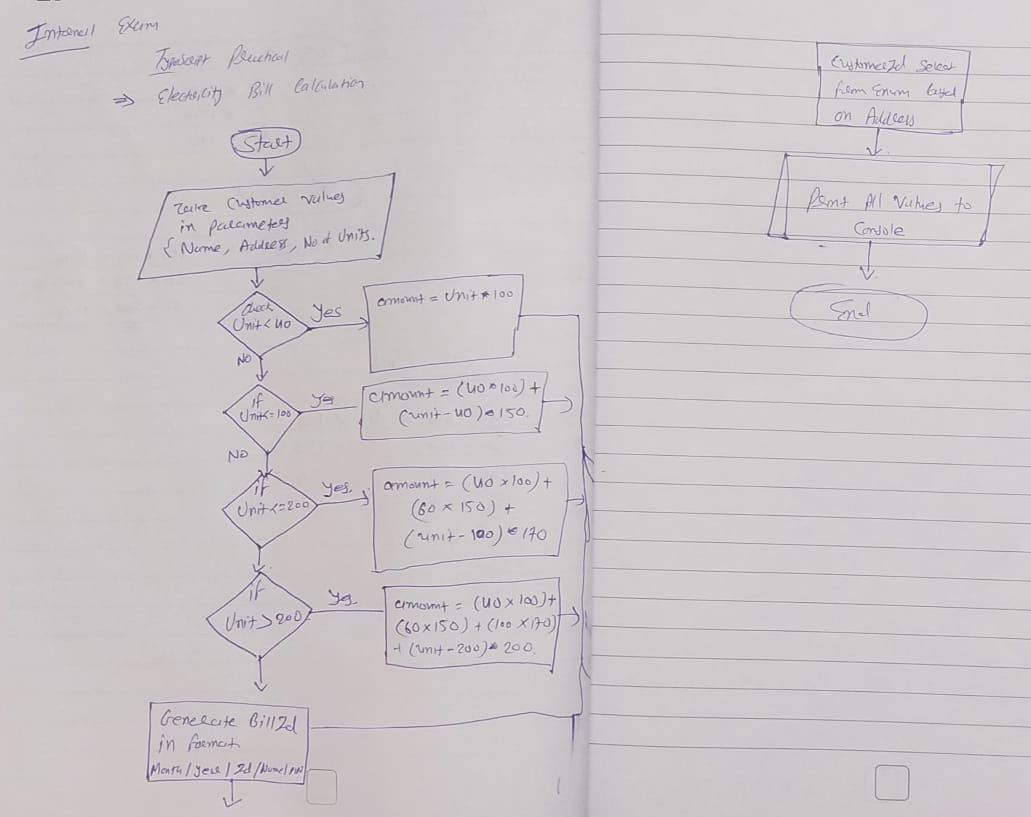 Internal Exam
Typescript Practical
⇒ Electricity Bill Calculation
Start
Take Customer values
in parameters
{ Name, Address, No of Units.
Check
Unit < 40
Yes
amount = Unit * 100
NO
if
Unit <= 100
Yes
amount = (40 * 100) +
(unit - 40) * 150.
NO
if
Unit <= 200
Yes.
amount = (40 x 100) +
(60 x 150) +
(unit - 100) * 170
if
Unit > 200
Yes.
amount = (40 x 100) +
(60 x 150) + (100 x 170)
+ (unit - 200) * 200.
Generate BillId
in format
Month / year / Id / Name /
CustomerId Select
from Enum based
on Address
Print All Values to
Console
End